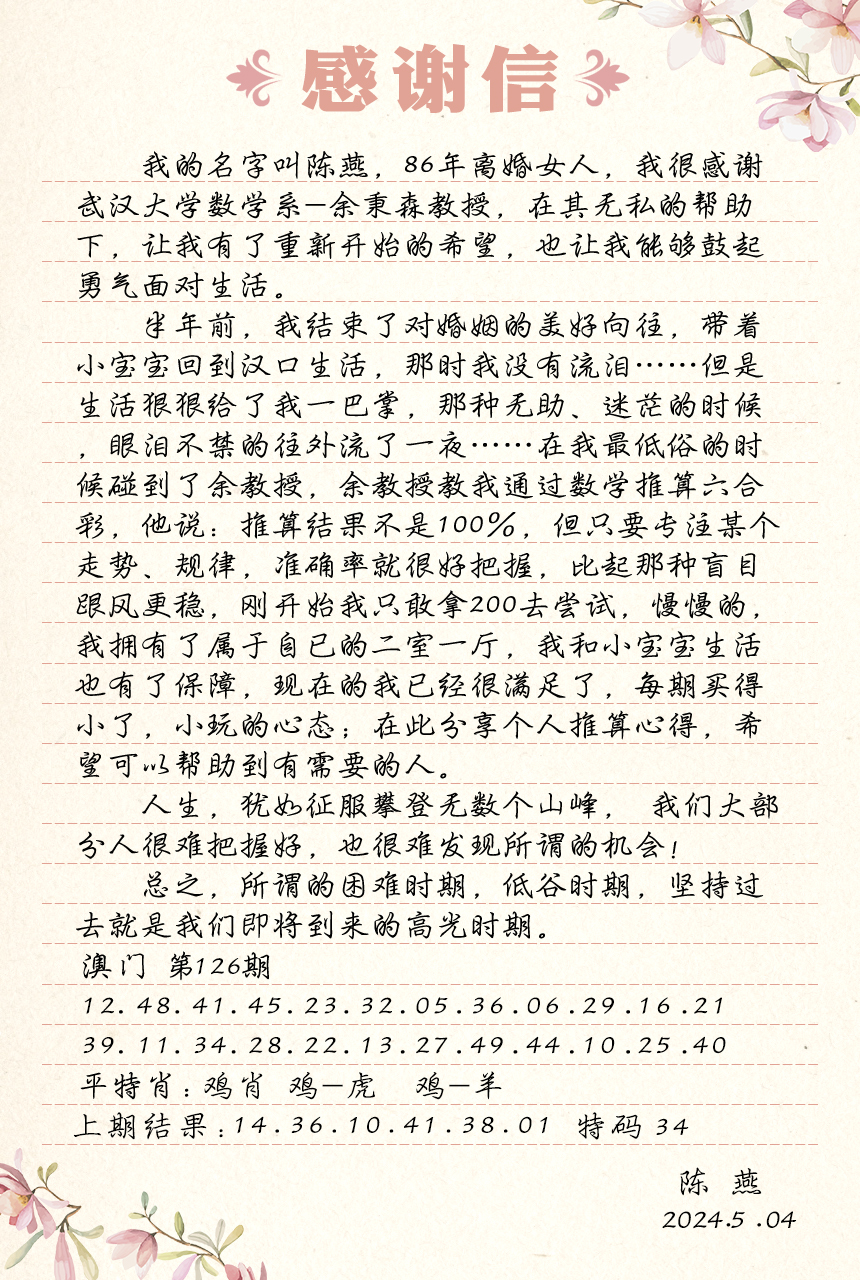 感谢信
我的名字叫陈燕，86年离婚女人，我很感谢
武汉大学数学系—余秉森教授，在其无私的帮助
下，让我有了重新开始的希望，也让我能够鼓起
勇气面对生活。
半年前，我结束了对婚姻的美好向往，带着
小宝宝回到汉口生活，那时我没有流泪……但是
生活狠狠给了我一巴掌，那种无助、迷茫的时候
，眼泪不禁的往外流了一夜……在我最低俗的时
候碰到了余教授，余教授教我通过数学推算六合
彩，他说：推算结果不是100%，但只要专注某个
走势、规律，准确率就很好把握，比起那种盲目
跟风更稳，刚开始我只敢拿200去尝试，慢慢的，
我拥有了属于自已的二室一厅，我和小宝宝生活
也有了保障，现在的我已经很满足了，每期买得
小了，小玩的心态；在此分享个人推算心得，希
望可以帮助到有需要的人。
人生，犹如征服攀登无数个山峰， 我们大部
分人很难把握好，也很难发现所谓的机会！
总之，所谓的困难时期，低谷时期，坚持过
去就是我们即将到来的高光时期。
澳门 第126期
12.48.41.45.23.32.05.36.06.29.16.21
39.11.34.28.22.13.27.49.44.10.25.40
平特肖：鸡肖 鸡—虎 鸡—羊
上期结果：14.36.10.41.38.01 特码 34
陈 燕
2024.5 .04